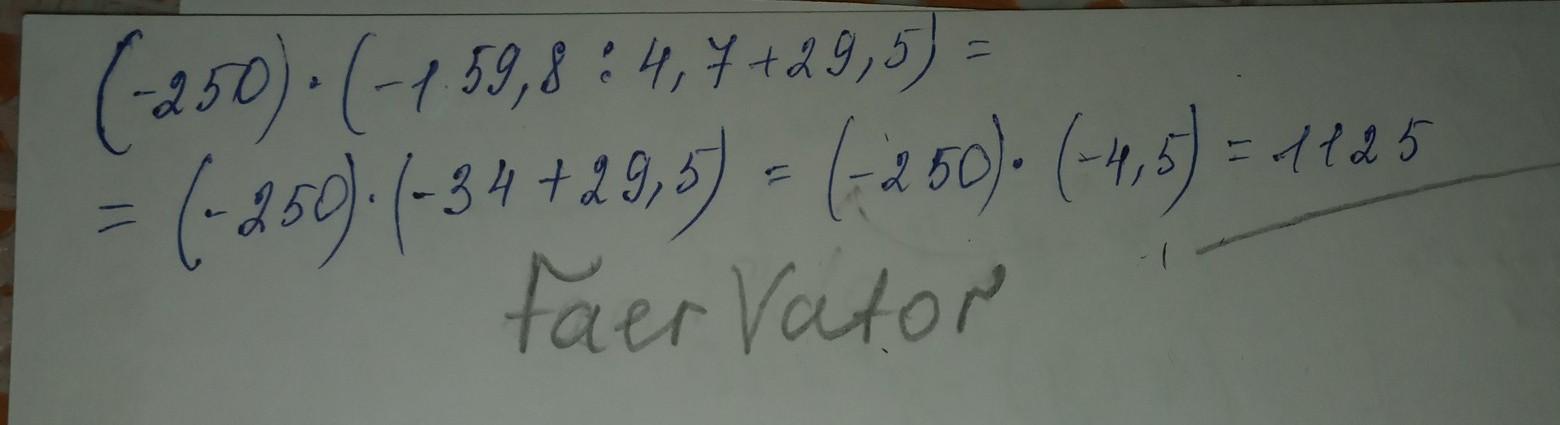 (-250)·(-159,8:4,7+29,5)=
=(-250)·(-34+29,5)=(-250)·(-4,5)=1125
FaerVator